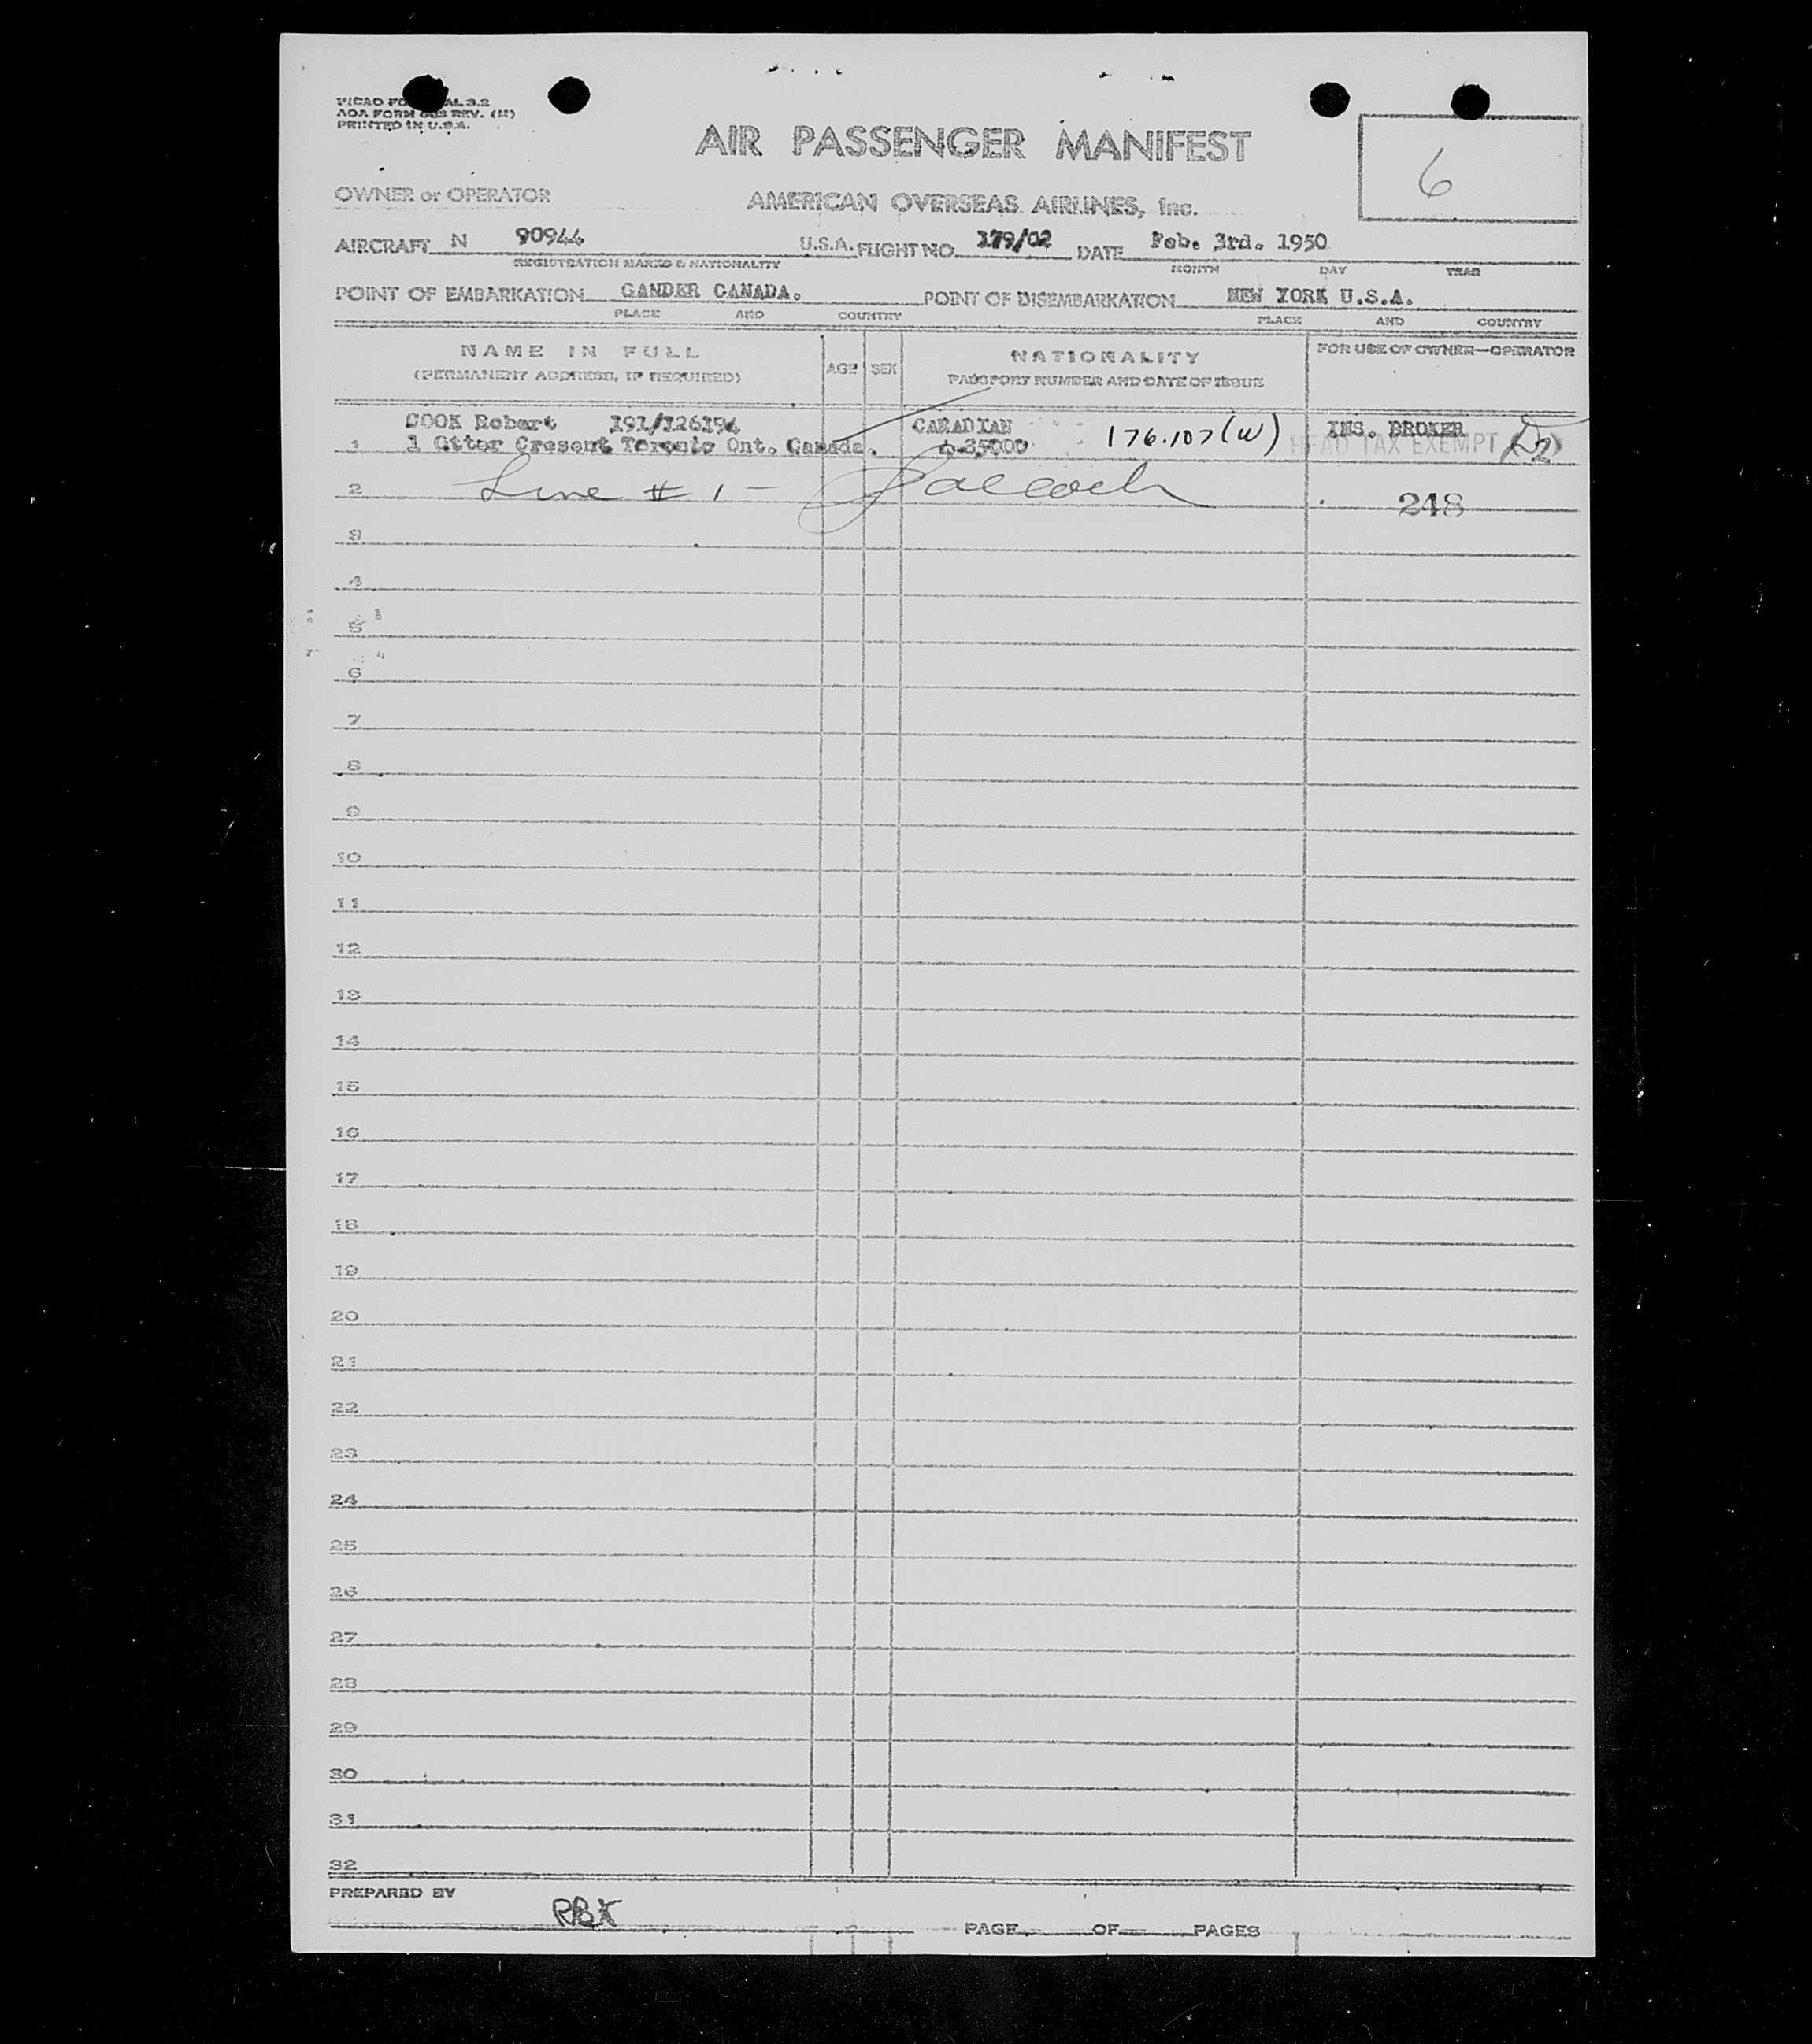 PICAO FO AL 3.2
AOA FORM 603 REV. (M)
PRINTED IN U.S.A.
AIR PASSENGER MANIFEST
6
OWNER or OPERATOR AMERICAN OVERSEAS AIRLINES, Inc.
AIRCRAFT N 90944 U.S.A. FLIGHT NO. 179/02 DATE Feb. 3rd. 1950
REGISTRATION MARKS & NATIONALITY MONTH DAY YEAR
POINT OF EMBARKATION GANDER CANADA. POINT OF DISEMBARKATION NEW YORK U.S.A.
PLACE AND COUNTRY PLACE AND COUNTRY
NAME IN FULL AGE SEX NATIONALITY FOR USE OF OWNER—OPERATOR
(PERMANENT ADDRESS, IF REQUIRED) PASSPORT NUMBER AND DATE OF ISSUE
COOK Robert 191/126194 CANADIAN 176.107(W) INS. BROKER
1 1 Otter Cresent Toronto Ont. Canada. 4-35000 HEAD TAX EXEMPT
2 Line # 1 - 248
3
4
5
6
7
8
9
10
11
12
13
14
15
16
17
18
19
20
21
22
23
24
25
26
27
28
29
30
31
32
PREPARED BY
PAGE OF PAGES